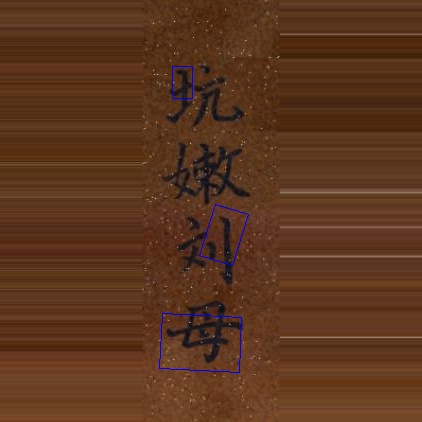 坑嫩刘母